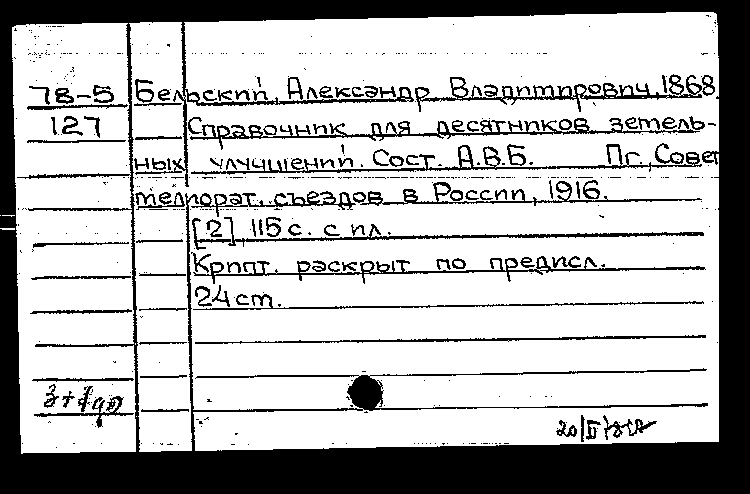 78-5 Бельский, Александр Владимирович, 1868
127 Справочник для десятников земель-
ных улучшений. Сост. А.В.Б. Пг., Совет
мелиорат. съездов в России, 1916.
[2], 115 с. с пл.
Крипт. раскрыт по предисл.
24 cm.